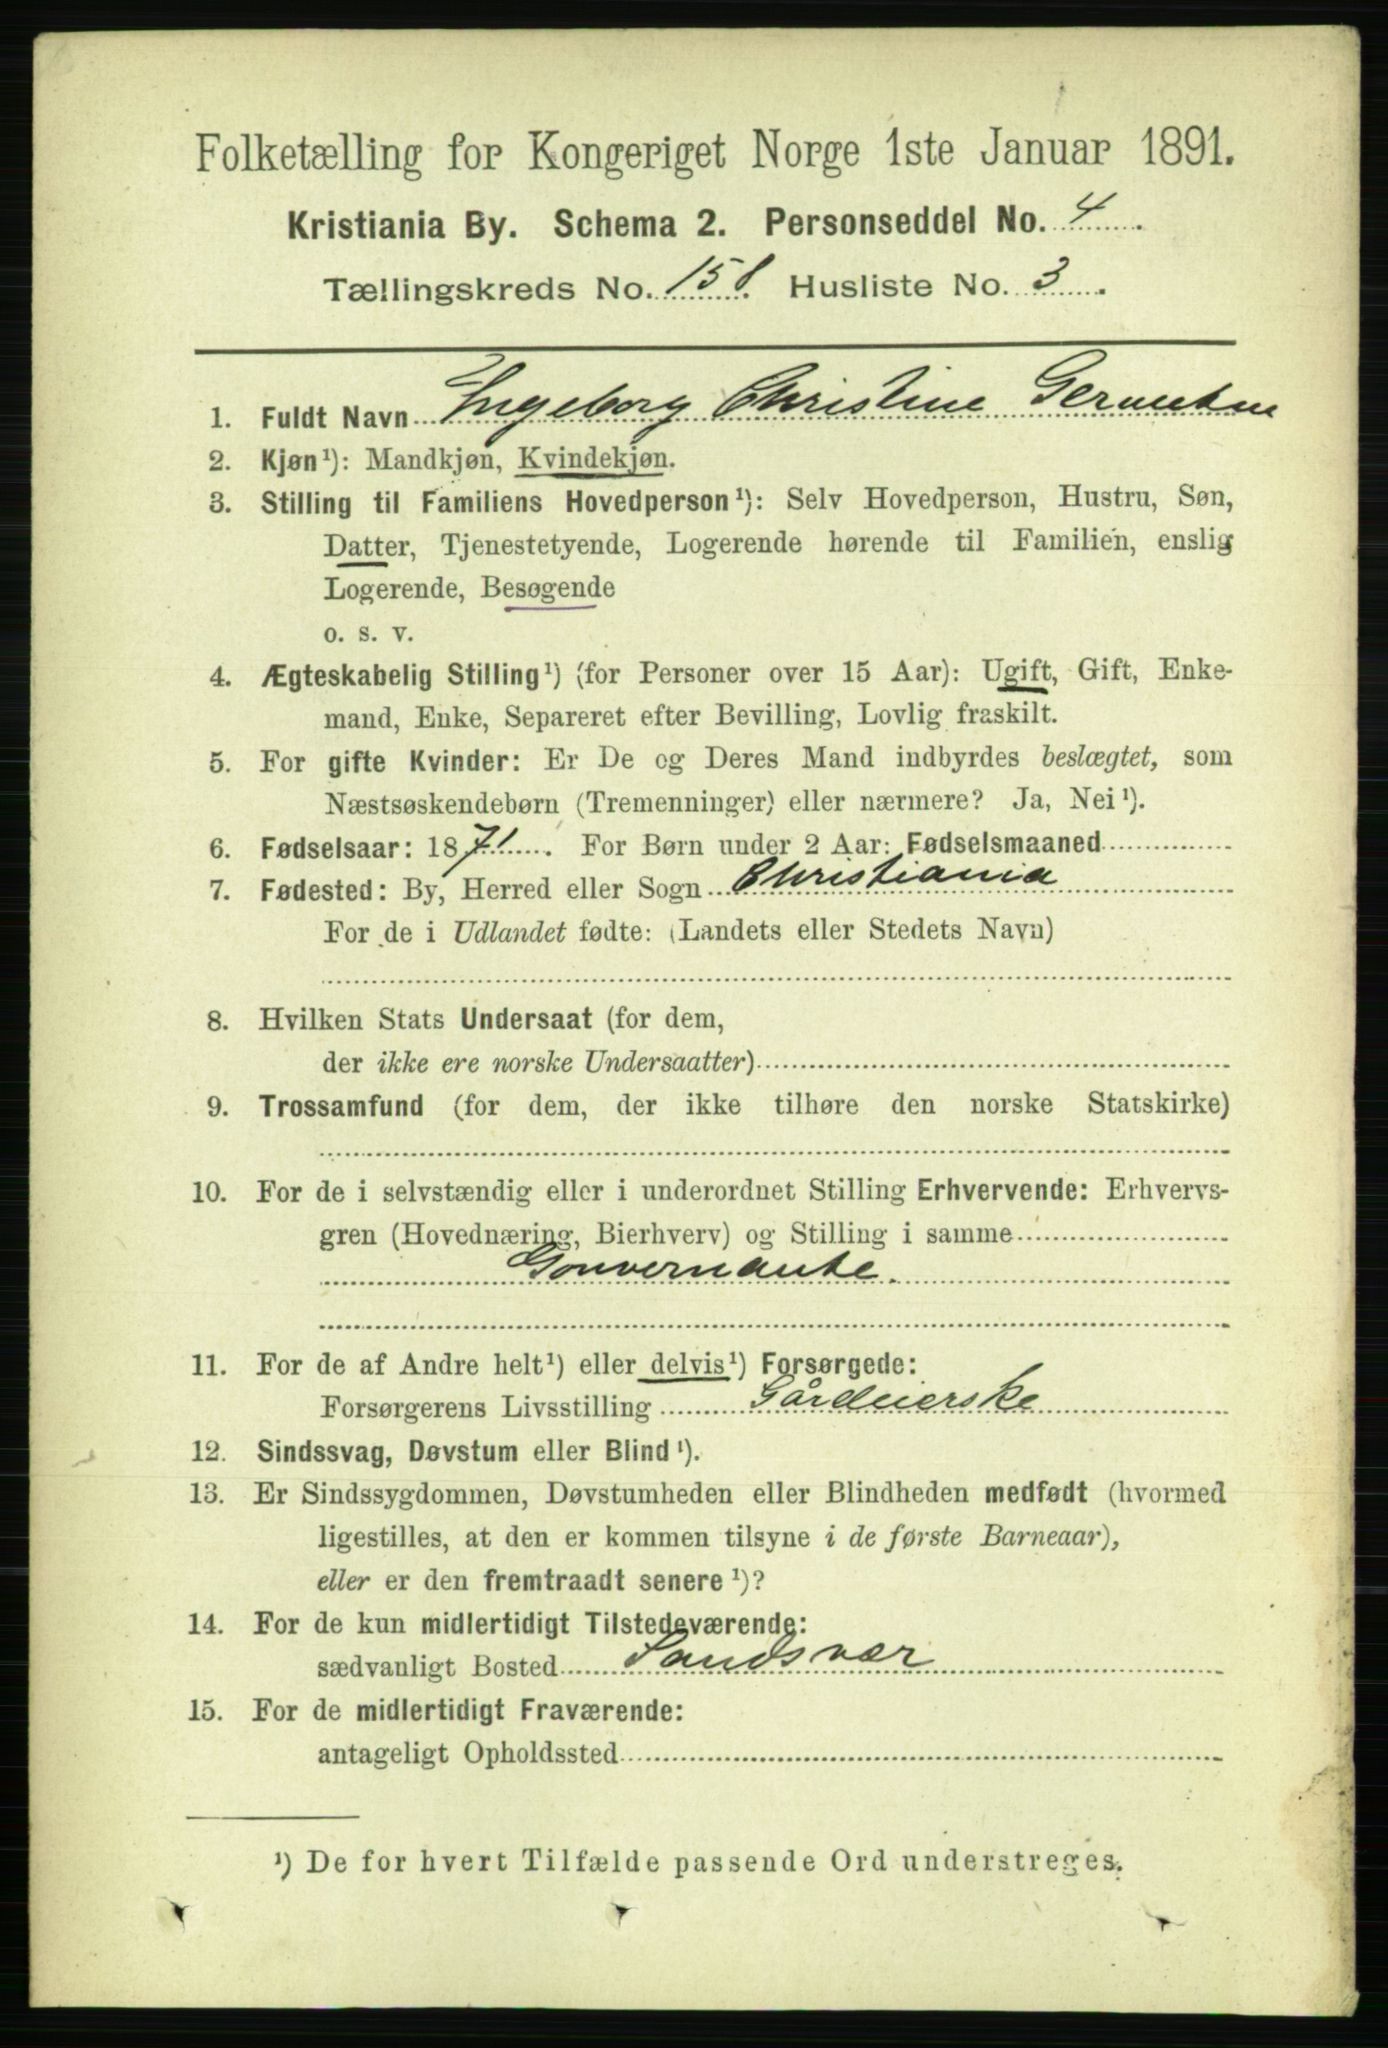 Folketælling for Kongeriget Norge 1ste Januar 1891.
Kristiania By. Schema 2. Personseddel No. 4.
Tællingskreds No. 158. Husliste No. 3.
1. Fuldt Navn Ingeborg Christine
2. Kjøn¹): Mandkjøn, Kvindekjøn.
3. Stilling til Familiens Hovedperson¹): Selv Hovedperson, Hustru, Søn,
Datter, Tjenestetyende, Logerende hørende til Familien, enslig
Logerende, Besøgende
o. s. v.
4. Ægteskabelig Stilling¹) (for Personer over 15 Aar): Ugift, Gift, Enke-
mand, Enke, Separeret efter Bevilling, Lovlig fraskilt.
5. For gifte Kvinder: Er De og Deres Mand indbyrdes beslægtet, som
Næstsøskendebørn (Tremenninger) eller nærmere? Ja, Nei¹).
6. Fødselsaar: 1871. For Børn under 2 Aar: Fødselsmaaned
7. Fødested: By, Herred eller Sogn Christiania
For de i Udlandet fødte: (Landets eller Stedets Navn)
8. Hvilken Stats Undersaat (for dem,
der ikke ere norske Undersaatter)
9. Trossamfund (for dem, der ikke tilhøre den norske Statskirke)
10. For de i selvstændig eller i underordnet Stilling Erhvervende: Erhvervs-
gren (Hovednæring, Bierhverv) og Stilling i samme
Gouvernante.
11. For de af Andre helt¹) eller delvis¹) Forsørgede:
Forsørgerens Livsstilling Gårdeierske
12. Sindssvag, Døvstum eller Blind¹).
13. Er Sindssygdommen, Døvstumheden eller Blindheden medfødt (hvormed
ligestilles, at den er kommen tilsyne i de første Barneaar),
eller er den fremtraadt senere¹)?
14. For de kun midlertidigt Tilstedeværende:
sædvanligt Bosted Sandsvær
15. For de midlertidigt Fraværende:
antageligt Opholdssted
¹) De for hvert Tilfælde passende Ord understreges.